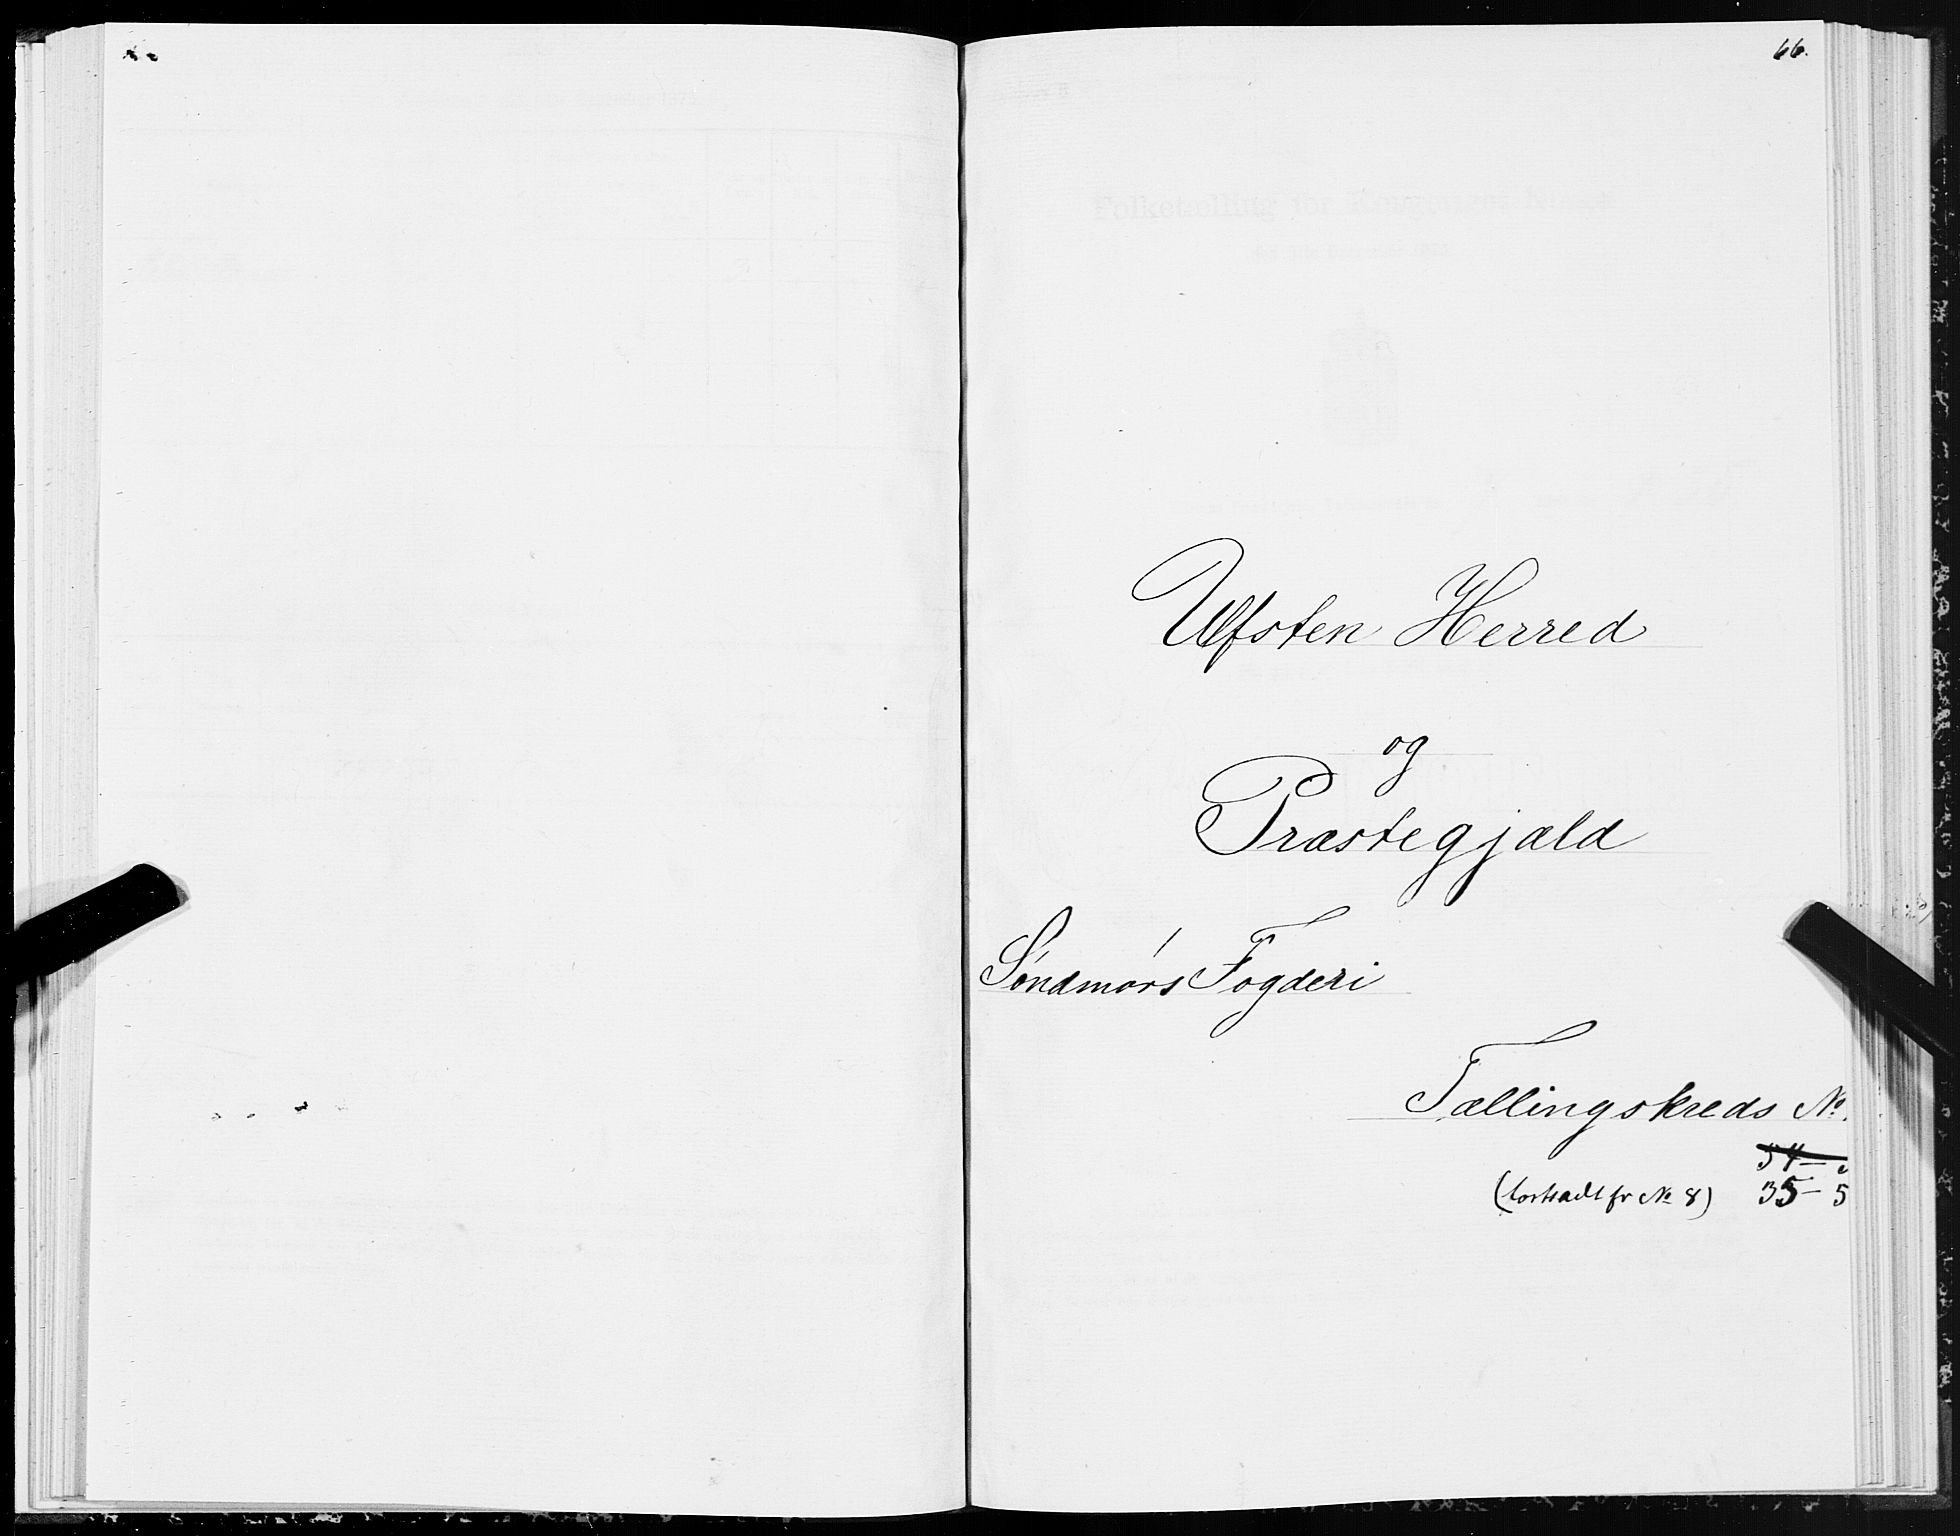 66.
Ulfsten Herred
og
Præstegjæld
Søndmørs Fogderi
Tællingskreds No.
34 –
(fortsadt fr No 8) 35 – 5